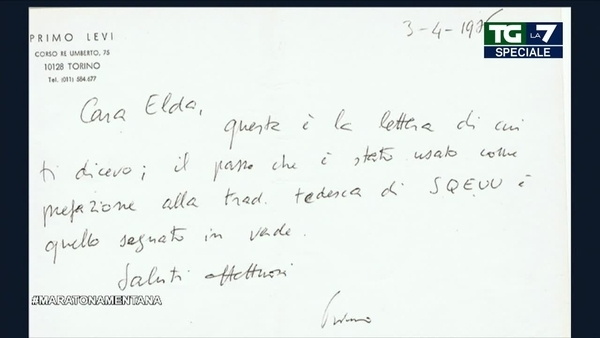 PRIMO LEVI
CORSO RE UMBERTO, 75
10128 TORINO
Tel. (011) 584.677
3-4-19
TG LA7
SPECIALE
Cara Elda,
questa è la lettera di cui
ti dicevo; il passo che è stato usato come
prefazione alla trad. tedesca di SQEUU è
quello segnato in verde.
Saluti affettuosi
Primo
#MARATONAMENTANA